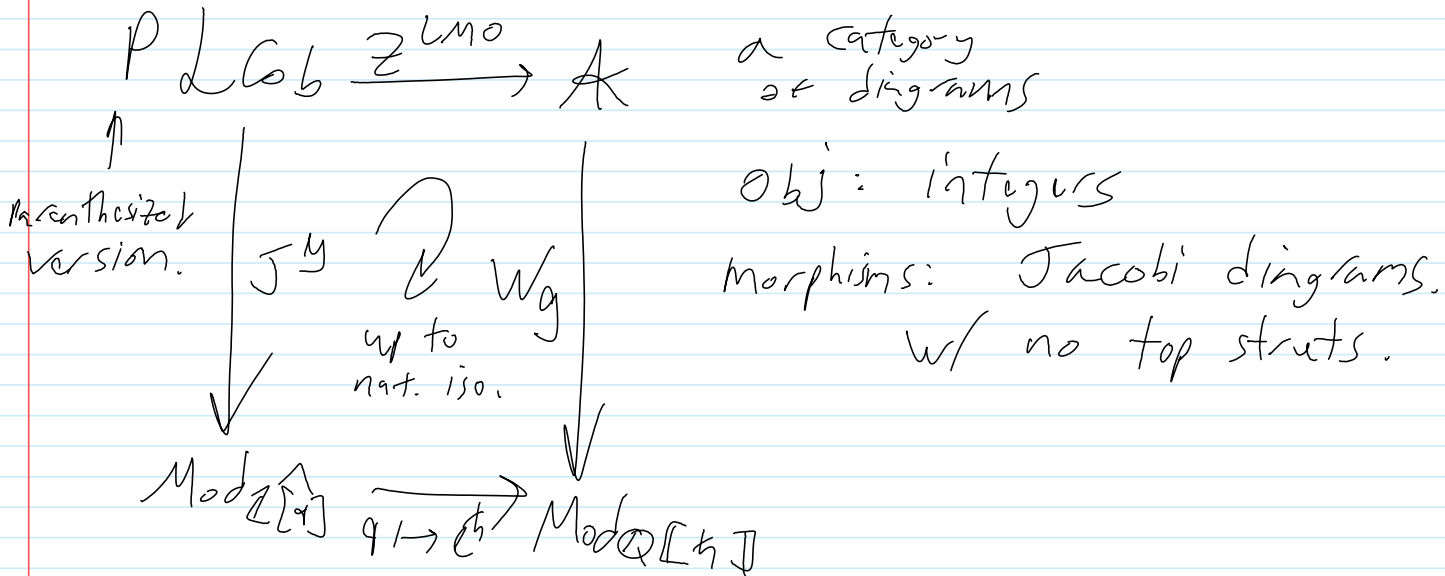 P LCob Z^{LMO} → A
a category
of diagrams
↑
Parenthesized
version.
J^y
up to
nat. iso.
W_g
Obj: integers
Morphisms: Jacobi diagrams.
w/ no top struts.
Mod_{\widehat{Z[q]}} → Mod_{Q[[ħ]]}
q ↦ e^ħ